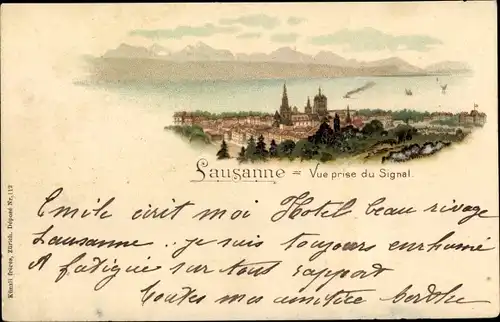 Lausanne = Vue prise du Signal.
Emile cirit moi Hotel beau rivage
Lausanne .. je suis toujours enrhumé
A fadigué sur tous rapport
Toutes mes amitiée
Künzli frères, Zürich. Déposé Nr. 112